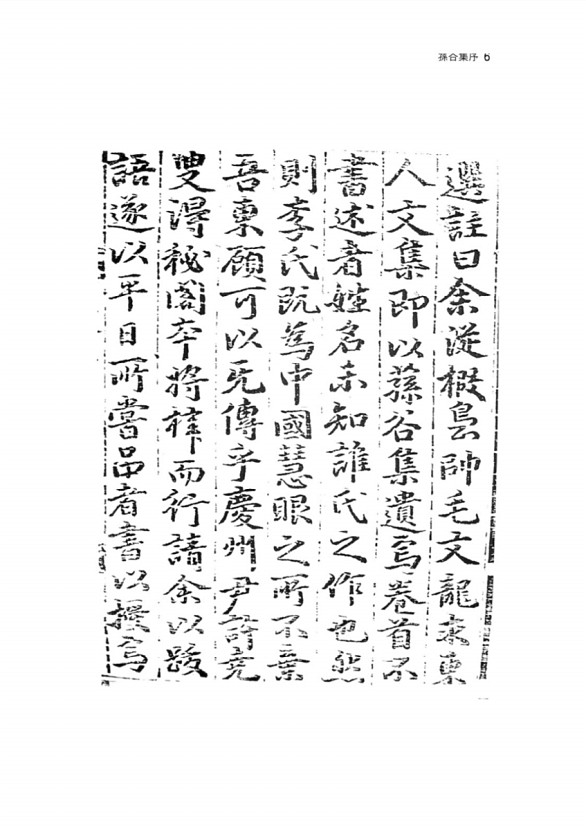 孫谷集序 6
選註曰余從椵島帥毛文龍求東
人文集即以蓀谷集遺焉卷首不
書述者姓名未知誰氏之作也然
則李氏既為中國慧眼之所不棄
吾東顧可以无傳乎慶州尹許充
叟得秘閣卒將梓而行請余以跋
語遂以平日所嘗品者書以授焉